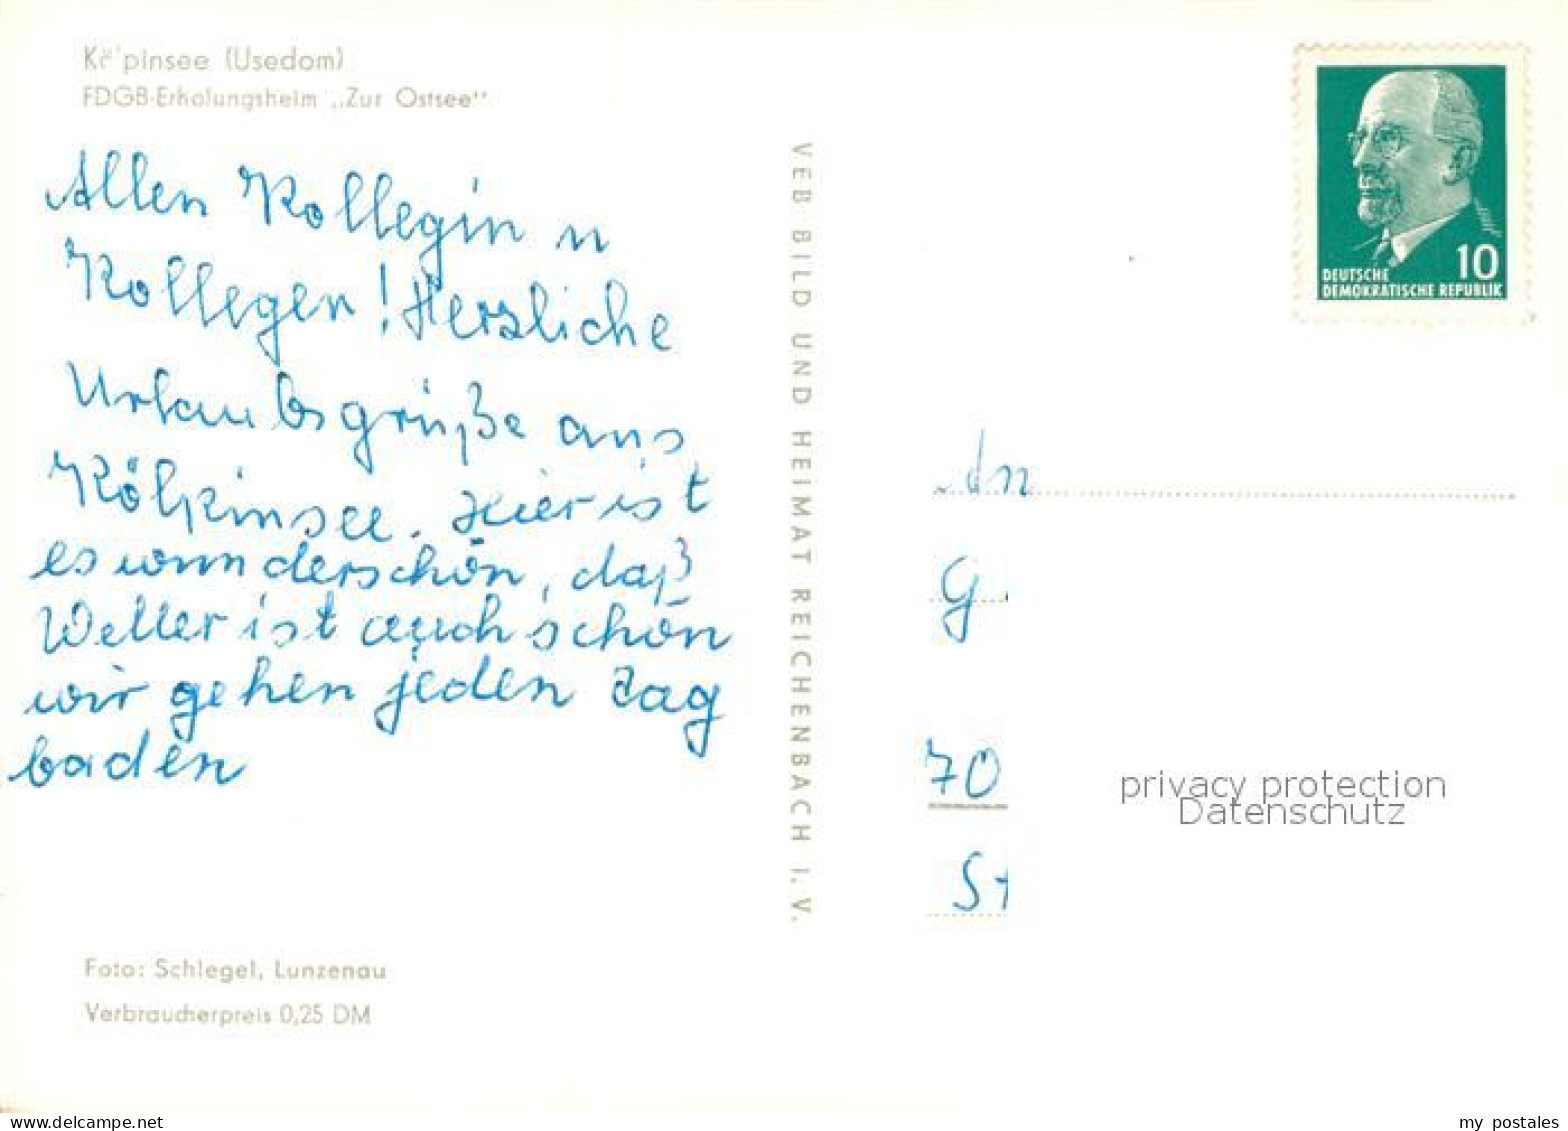 Kö'pinsee (Usedom)
FDGB-Erholungsheim „Zur Ostsee"
Allen Kollegin u
Kollegen! Herzliche
Urlaubsgrüße aus
Kölpinsee. Hier ist
es wunderschön, daß
Wetter ist auch schön
wir gehen jeden Tag
baden
Foto: Schlegel, Lunzenau
Verbraucherpreis 0,25 DM
VEB BILD UND HEIMAT REICHENBACH I. V.
10
DEUTSCHE
DEMOKRATISCHE REPUBLIK
An
G
70
St
privacy protection
Datenschutz
www.delcampe.net
my_postales